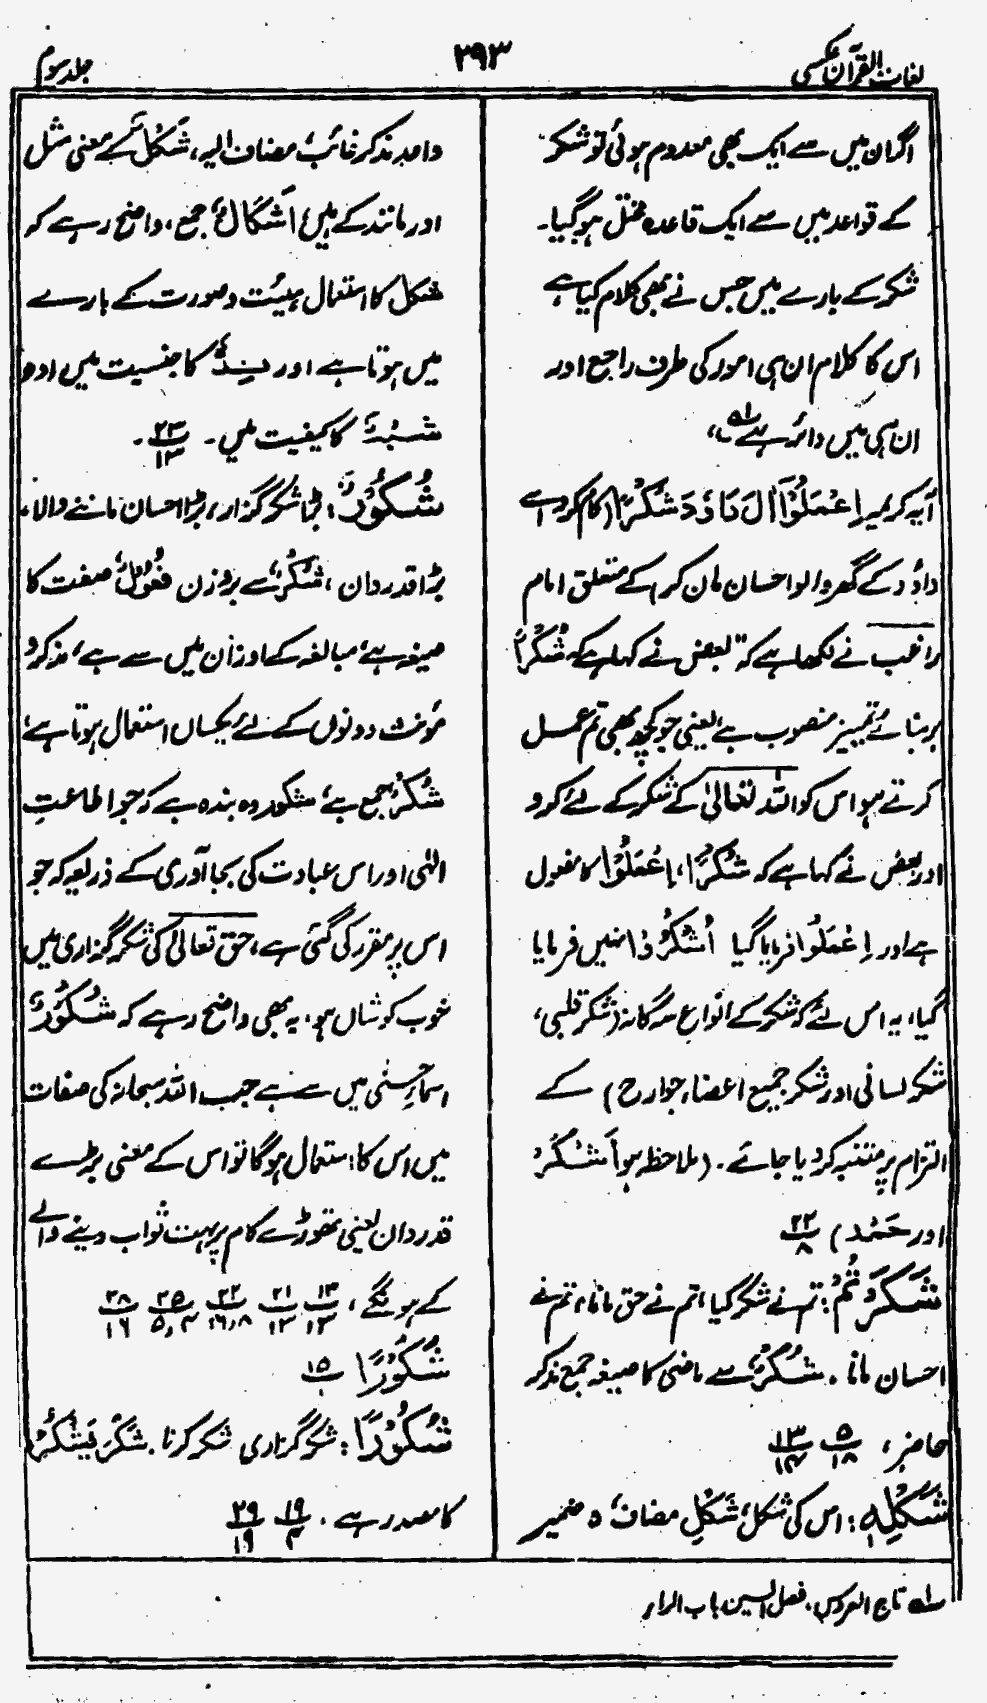 لغات القرآن عکسی
۲۹۳
جلد سوم
اگر ان میں سے ایک بھی معدوم ہوئی تو شکر
کے قواعد میں سے ایک قاعدہ مختل ہو گیا۔
شکر کے بارے میں جس نے بھی کلام کیا ہے
اس کا کلام ان ہی امور کی طرف راجع اور
ان ہی میں دائر ہے ۱؎،
آیہ کریمہ اِعْمَلُوْا اٰلَ دَاوٗدَ شُكْرًا (کام کرو اے
داؤد کے گھر والو احسان مان کر) کے متعلق امام
راغب نے لکھا ہے کہ "بعض نے کہا ہے کہ شُكْرًا
بر بنائے تمییز منصوب ہے یعنی جو کچھ بھی تم عمل
کرتے ہو اس کو اللہ تعالیٰ کے شکر کے لئے کرو
اور بعض نے کہا ہے کہ شُكْرًا، اِعْمَلُوْا کا مفعول
ہے اور اِعْمَلُوا فرمایا گیا اُشْكُرُوْا نہیں فرمایا
گیا، یہ اس لئے کہ شکر کے انواع سہ گانہ (شکر قلبی،
شکر لسانی اور شکر جمیع اعضاء جوارح) کے
التزام پر متنبہ کر دیا جائے۔ (ملاحظہ ہو اَشْكُرُ
اور حَمْد) ۲۲/۸
شَكَرْتُمْ: تم نے شکر کیا، تم نے حق مانا، تم نے
احسان مانا۔ شُكْرٌ سے ماضی کا صیغہ جمع مذکر
حاضر، ۵/۱۸ ۱۳/۱۴
شَكْلِهٖ: اس کی شکل، شَكْلِ مضاف، ہ ضمیر
واحد مذکر غائب، مضاف الیہ، شَكْلٌ کے معنی مثل
اور مانند کے ہیں، اَشْكَالٌ جمع، واضح رہے کہ
شکل کا استعمال ہیئت و صورت کے بارے
میں ہوتا ہے اور نِدٌّ کا جنسیت میں اور
شِبْہٌ کا کیفیت میں۔ ۲۳/۱۳۔
شَكُوْرٌ: بڑا شکر گزار، بڑا احسان ماننے والا،
بڑا قدردان، شُكْرٌ سے بروزن فَعُوْلٌ صفت کا
صیغہ ہے، مبالغہ کے اوزان میں سے ہے، مذکر و
مؤنث دونوں کے لئے یکساں استعمال ہوتا ہے،
شُكُرٌ جمع ہے، شکور وہ بندہ ہے کہ جو اطاعتِ
الٰہی اور اس عبادت کی بجا آوری کے ذریعہ کہ جو
اس پر مقرر کی گئی ہے، حق تعالیٰ کی شکر گزاری میں
خوب کوشاں ہو۔ یہ بھی واضح رہے کہ شَكُوْرٌ
اسماءِ حسنٰی میں سے ہے جب اللہ سبحانہ کی صفات
میں اس کا استعمال ہوگا تو اس کے معنی بڑے
قدردان یعنی تھوڑے کام پر بہت ثواب دینے والے
کے ہونگے، ۱۳/۱۳ ۲۱/۱۳ ۲۲/۱۶،۸ ۲۵/۵،۴ ۲۸/۱۶
شَكُوْرًا ۱۵/۱
شُكُوْرًا: شکر گزاری شکر کرنا۔ شَكَرَ يَشْكُرُ
کا مصدر ہے۔ ۱۹/۴ ۲۹/۱۹
۱؎ تاج العروس، فصل الشین باب الراء